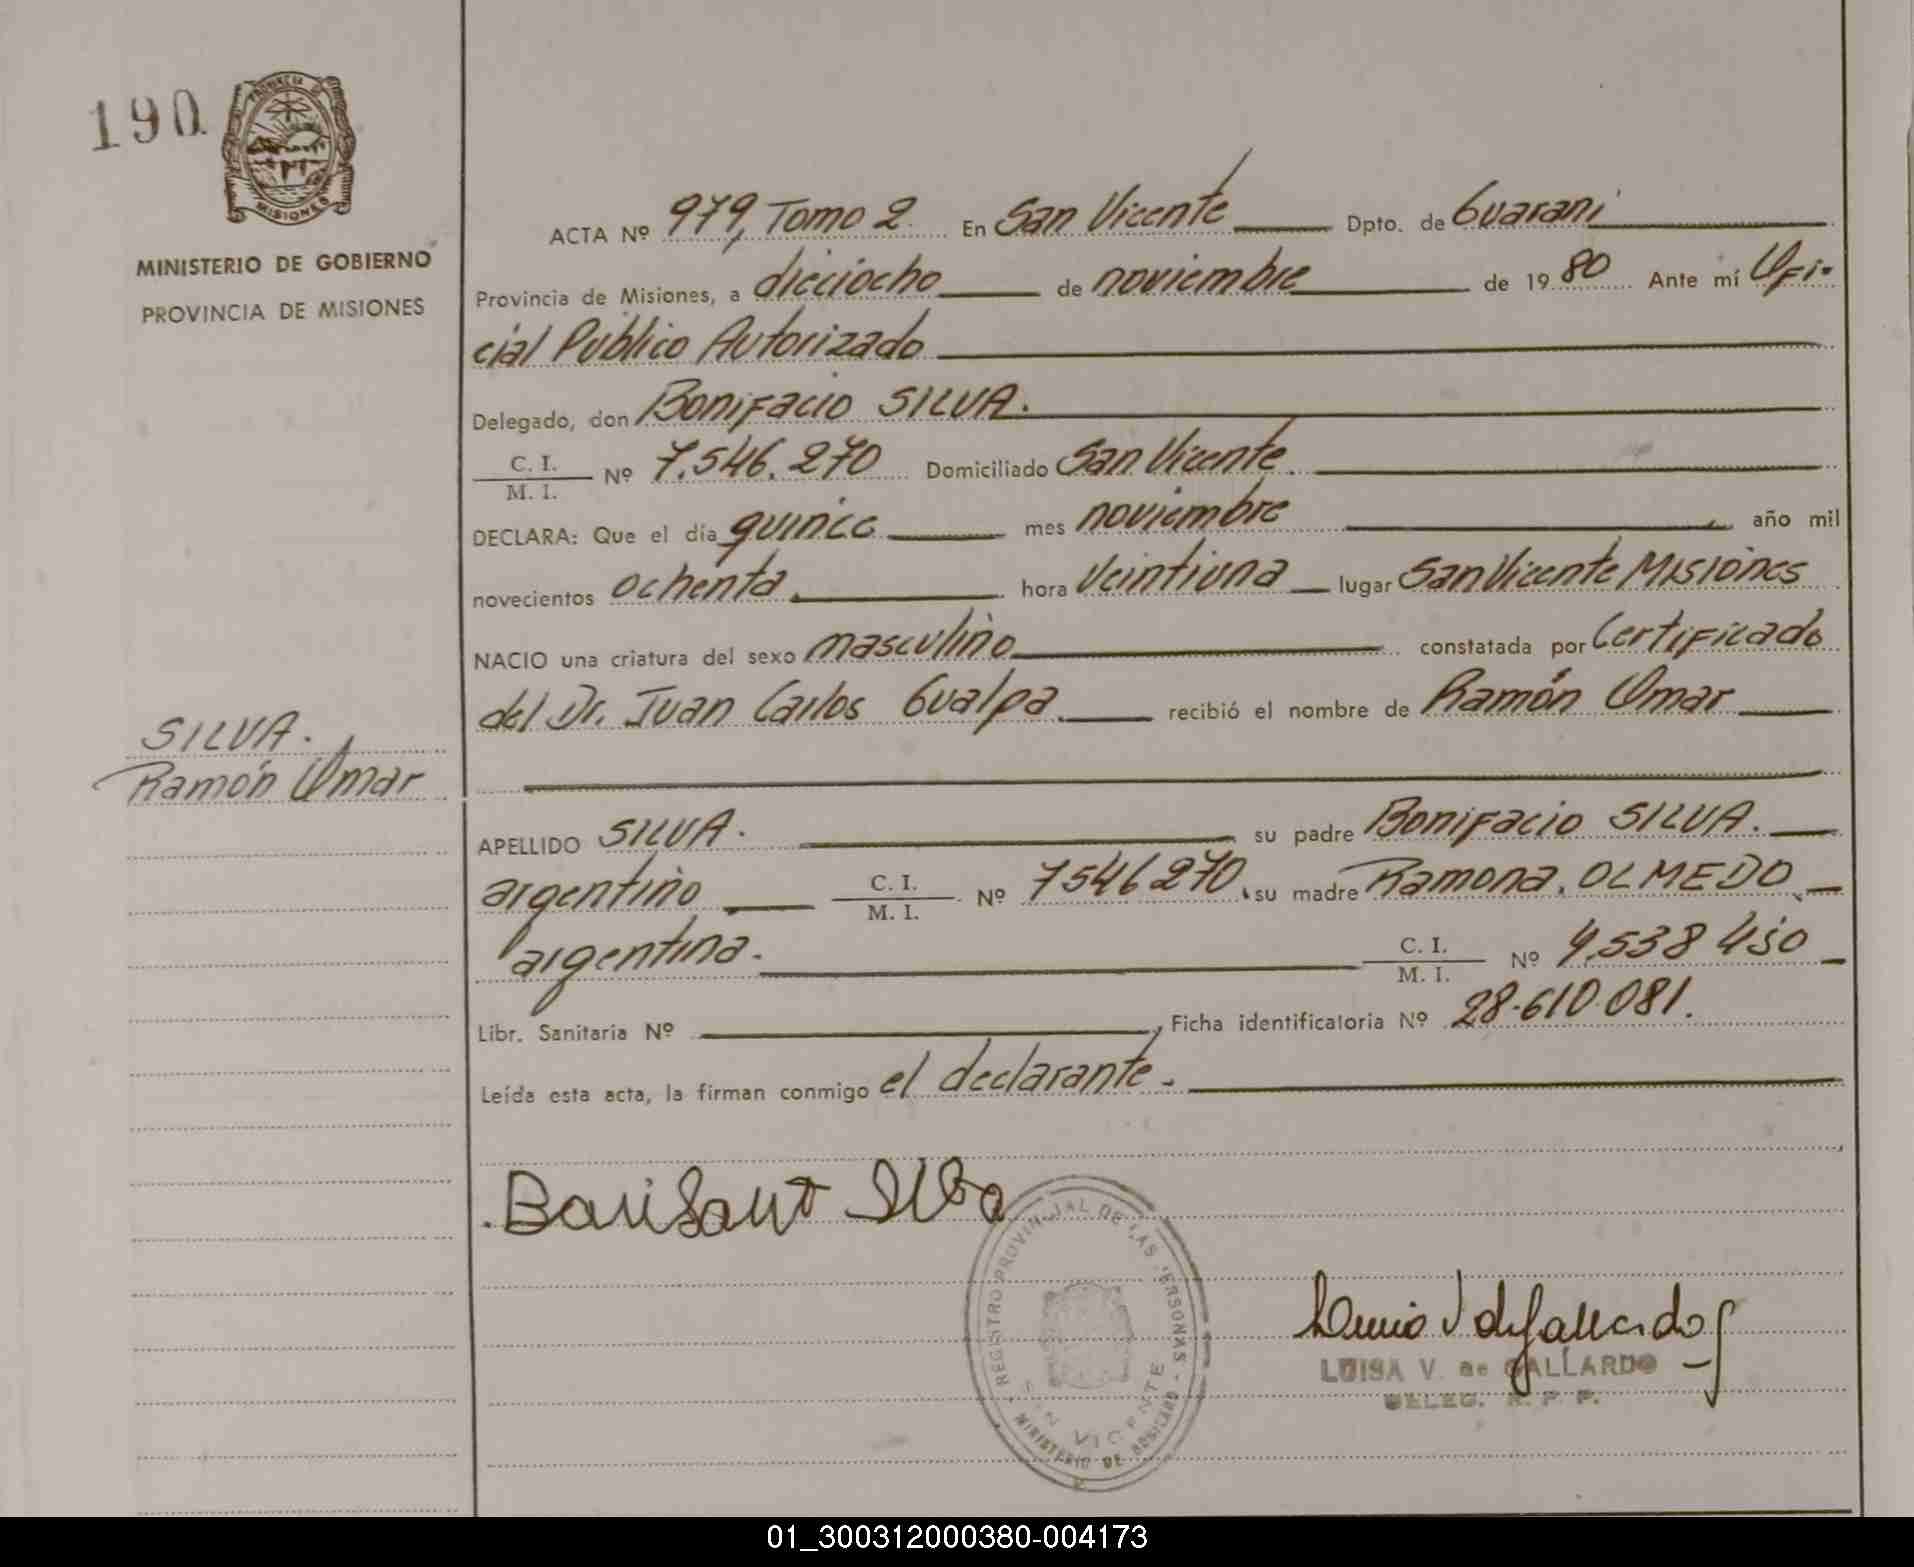 190
PROVINCIA DE
MISIONES
MINISTERIO DE GOBIERNO
PROVINCIA DE MISIONES
SILVA.
Ramón Omar
ACTA Nº 979, Tomo 2. En San Vicente Dpto. de Guaraní
Provincia de Misiones, a dieciocho de noviembre de 19 80 Ante mí Ofi-
cial Público Autorizado
Delegado, don Bonifacio SILVA.
C. I.
M. I. Nº 7.546.270 Domiciliado San Vicente.
DECLARA: Que el día quince mes noviembre año mil
novecientos ochenta. hora veintiuna lugar San Vicente Misiones
NACIO una criatura del sexo masculino constatada por Certificado
del Dr. Juan Carlos Gualpa recibió el nombre de Ramón Omar
APELLIDO SILVA. su padre Bonifacio SILVA.
argentino C. I.
M. I. Nº 7546270 su madre Ramona, OLMEDO
argentina. C. I.
M. I. Nº 4.538 450
Libr. Sanitaria Nº , Ficha identificatoria Nº 28.610.081.
Leída esta acta, la firman conmigo el declarante.
REGISTRO PROVINCIAL DE LAS PERSONAS
SAN VICENTE
MINISTERIO DE
LUISA V. de GALLARDO
DELEG. R. P. P.
01_300312000380-004173